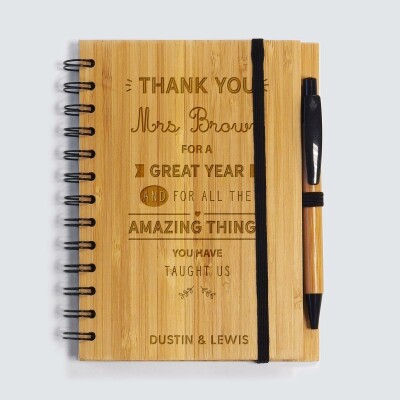 THANK YOU
Mrs Brown
FOR A
GREAT YEAR
AND FOR ALL THE
AMAZING THING
YOU HAVE
TAUGHT US
DUSTIN & LEWIS